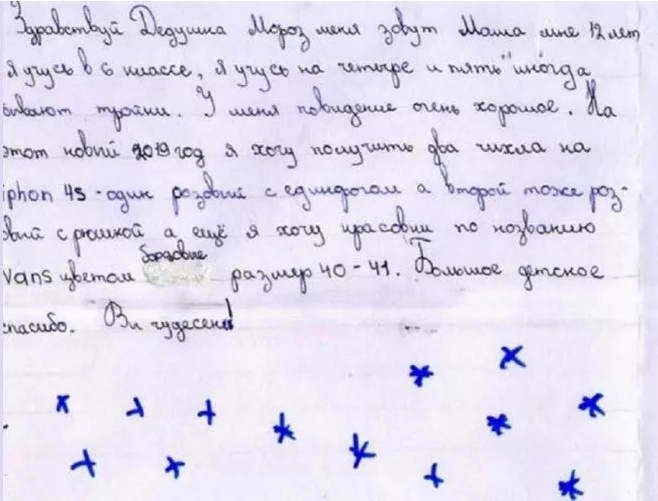 Здравствуй Дедушка Мороз меня зовут Маша мне 12 лет
Я учусь в 6 классе, я учусь на четыре и пять" иногда
бывают тройки. У меня повидение очень хорошое. На
этот новий 2019 год я хочу получить два чихла на
iphon 4s - один розовий с единорогом а второй тоже роз-
овий с рюшкой а ещё я хочу красовки по нозванию
vans цветом бордовые размер 40-41. Большое детское
спасибо. Ви чудесен!